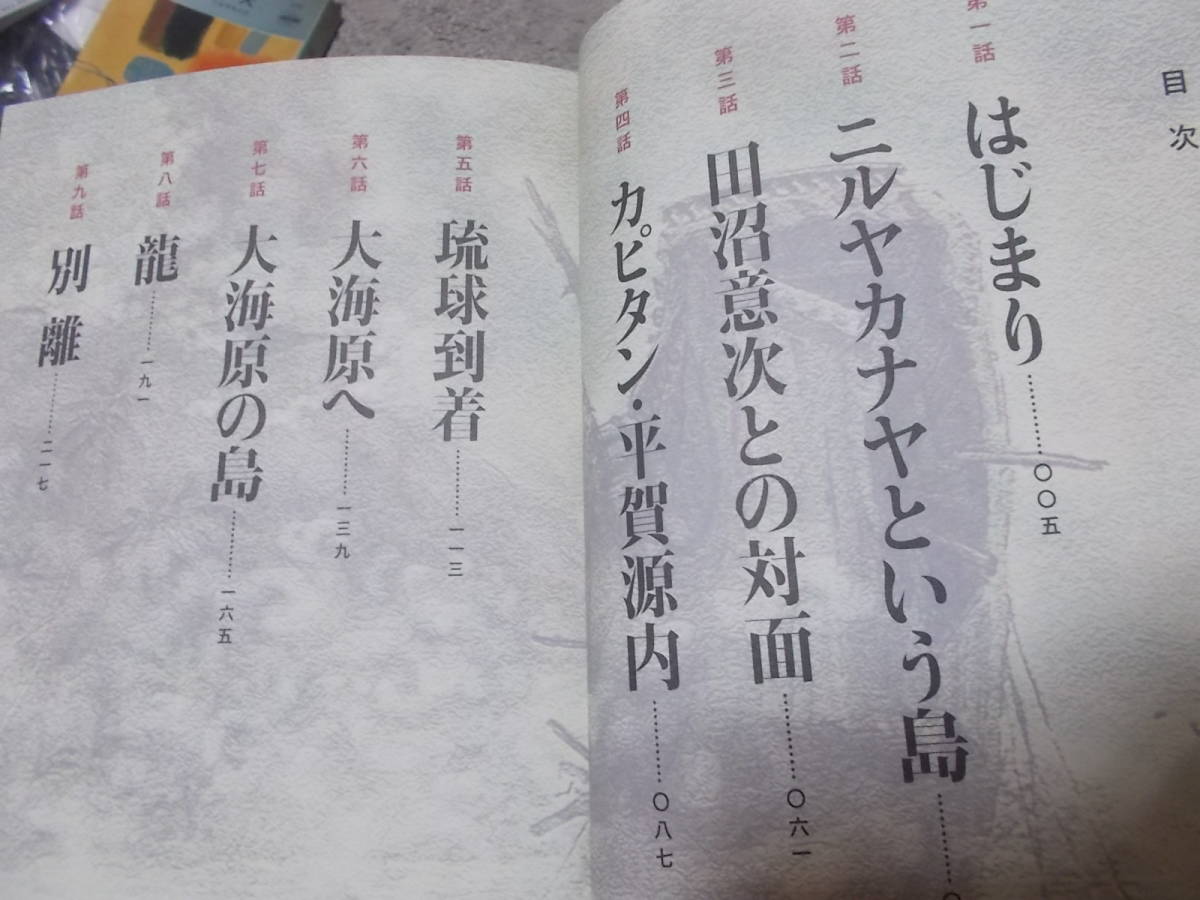 目次
第一話 はじまり…………〇〇五
第二話 ニルヤカナヤという島…………〇
第三話 田沼意次との対面…………〇六一
第四話 カピタン・平賀源内…………〇八七
第五話 琉球到着…………一一三
第六話 大海原へ…………一三九
第七話 大海原の島…………一六五
第八話 龍…………一九一
第九話 別離…………二一七